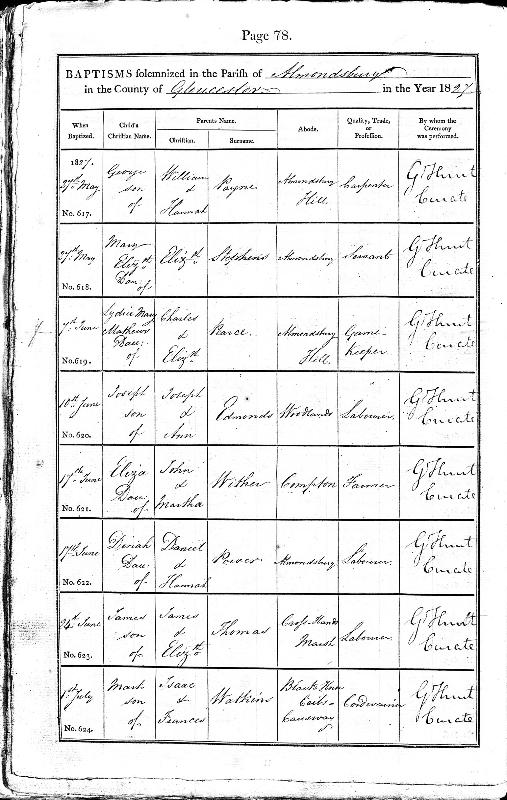 Page 78.
BAPTISMS solemnized in the Parish of Almondsbury
in the County of Gloucester in the Year 1827
When Baptized. Child's Christian Name. Parents Name. Abode. Quality, Trade, or Profession. By whom the Ceremony was performed.
Christian. Surname.
1827.
27th May
No. 617.
George
son
of
William
&
Hannah
Payne
Almondsbury
Hill
Carpenter
G Hunt
Curate
27th May
No. 618.
Mary
Elizth
Dau.
of
Elizth
Stephens
Almondsbury
Servant
G Hunt
Curate
7th June
No. 619.
Lydia Mary
Mathews
Dau:
of
Charles
&
Elizth
Pearce
Almondsbury
Hill
Game-
keeper
G Hunt
Curate
10th June
No. 620.
Joseph
son
of
Joseph
&
Ann
Edmonds
Woodlands
Labourer
G Hunt
Curate
17th June
No. 621.
Eliza
Dau:
of
John
&
Martha
Wither
Compton
Farmer
G Hunt
Curate
17th June
No. 622.
Dinah
Dau.
of
Daniel
&
Hannah
Power
Almondsbury
Labourer
G Hunt
Curate
24th June
No. 623.
James
son
of
James
&
Elizth
Thomas
Cross Hands
Marsh
Labourer
G Hunt
Curate
1st July
No. 624.
Mark
son
of
Isaac
&
Frances
Watkins
Black Horse
Causeway
Cordwainer
G Hunt
Curate